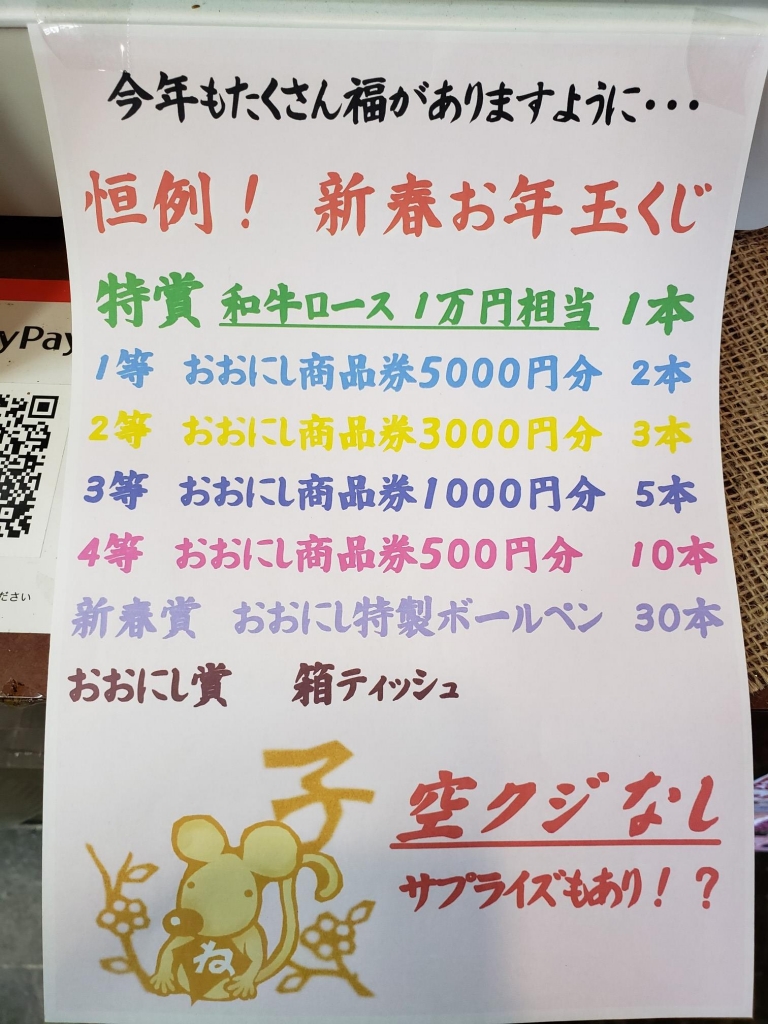 今年もたくさん福がありますように・・・
恒例！ 新春お年玉くじ
特賞 和牛ロース 1万円相当 1本
1等 おおにし商品券5000円分 2本
2等 おおにし商品券3000円分 3本
3等 おおにし商品券1000円分 5本
4等 おおにし商品券500円分 10本
新春賞 おおにし特製ボールペン 30本
おおにし賞 箱ティッシュ
子
空クジなし
サプライズもあり！？
ね
yPay
ださい